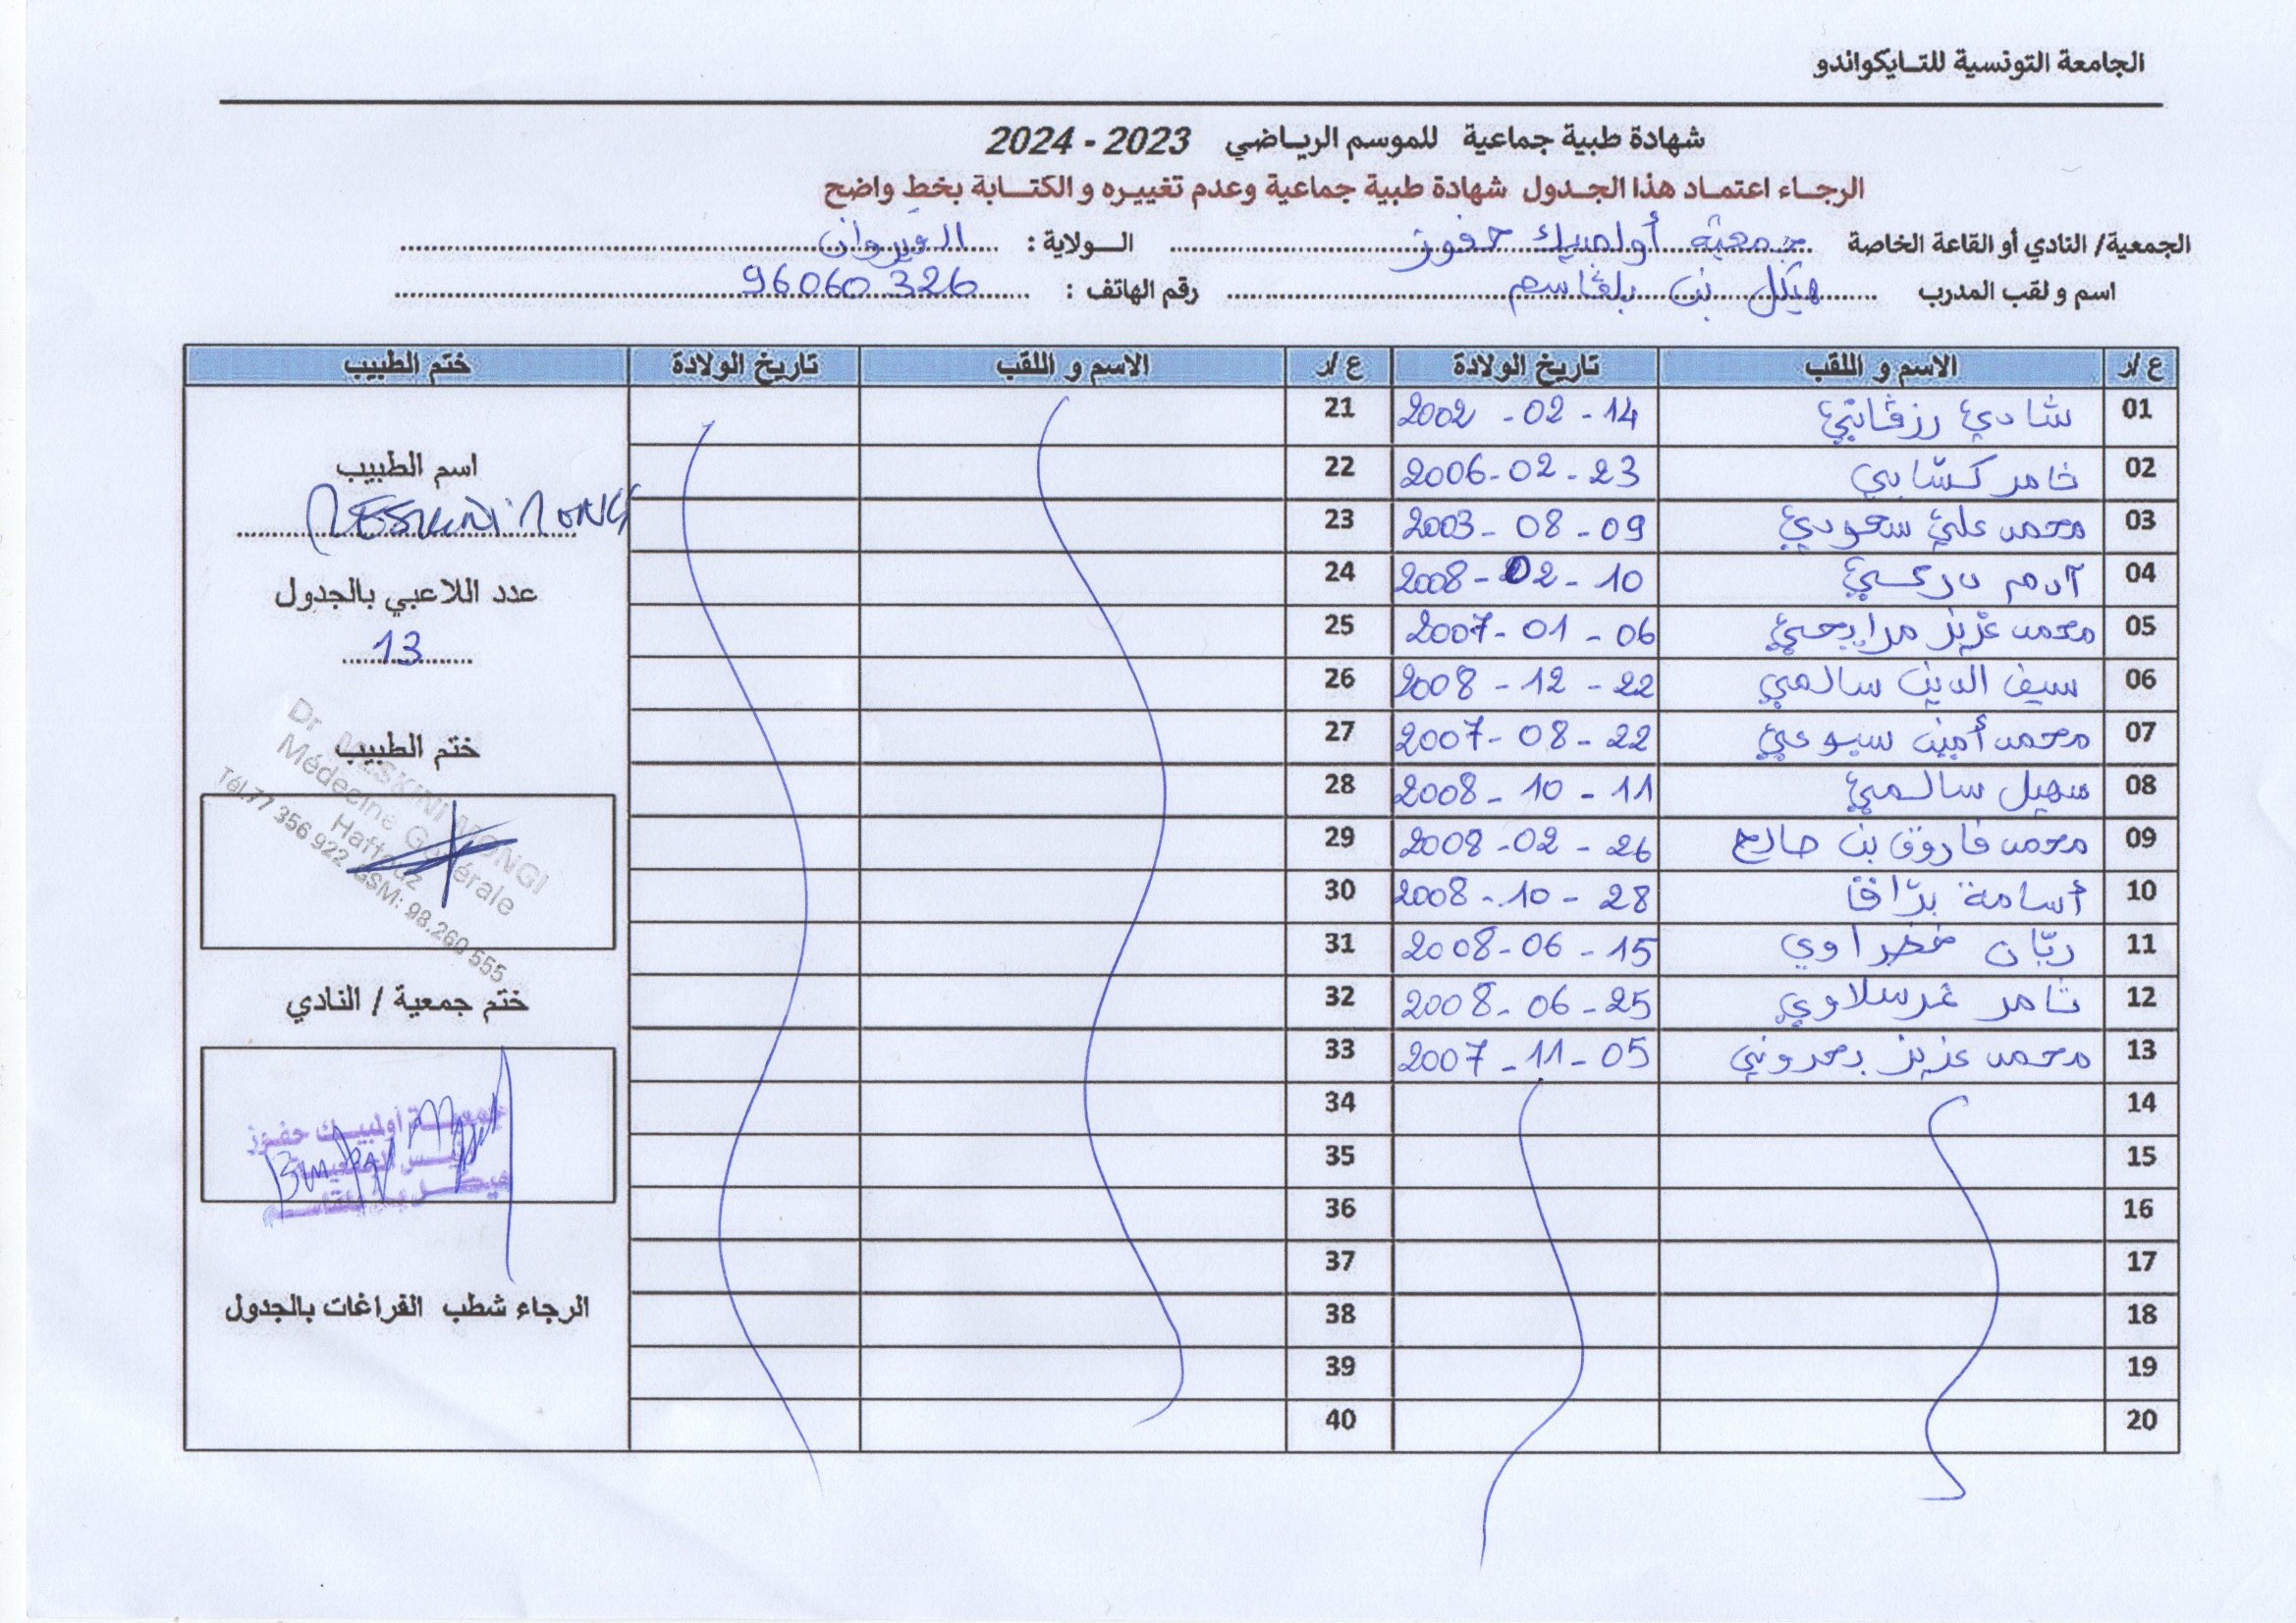 الجامعة التونسية للتـايكواندو
شهادة طبية جماعية للموسم الرياضي 2023 - 2024
الرجـاء اعتمـاد هذا الجـدول شهادة طبية جماعية وعدم تغييـره و الكتـابة بخط واضح
الجمعية/ النادي أو القاعة الخاصة جمعية أولمبيك حفوز الــولاية : القيروان
اسم و لقب المدرب هيكل بن بلقاسم رقم الهاتف : 96060326
ع /ر الاسم و اللقب تاريخ الولادة ع /ر الاسم و اللقب تاريخ الولادة ختم الطبيب
01 شادي رزقاني 2002 - 02 - 14 21
02 كسّابي 2006-02-23 22
03 محمد علي سعودي 2003 - 08 - 09 23
04 آدم 2008-02-10 24
05 محمد عزيز مرابحي 2007-01-06 25
06 سيف الدين سالمي 2008 - 12 - 22 26
07 محمد أمين سبوعي 2007-08-22 27
08 سهيل سالمي 2008 - 10 - 11 28
09 محمد فاروق بن صالح 2008-02-26 29
10 أسامة 2008-10-28 30
11 ريّان خضراوي 2008-06-15 31
12 ثامر غرسلاوي 2008-06-25 32
13 محمد عزيز بحروني 2007-11-05 33
14 34
15 35
16 36
17 37
18 38
19 39
20 40
اسم الطبيب
MESKINI MONGI
عدد اللاعبي بالجدول
13
ختم الطبيب
Dr MESKINI MONGI
Médecine Générale
Haffouz
Tél.77 356 922 GSM: 98.260 555
ختم جمعية / النادي
جمعيـة أولمبيـك حفـوز
رئيـس الجمعيـة
هيكـل بن بلقاسـم
الرجاء شطب الفراغات بالجدول